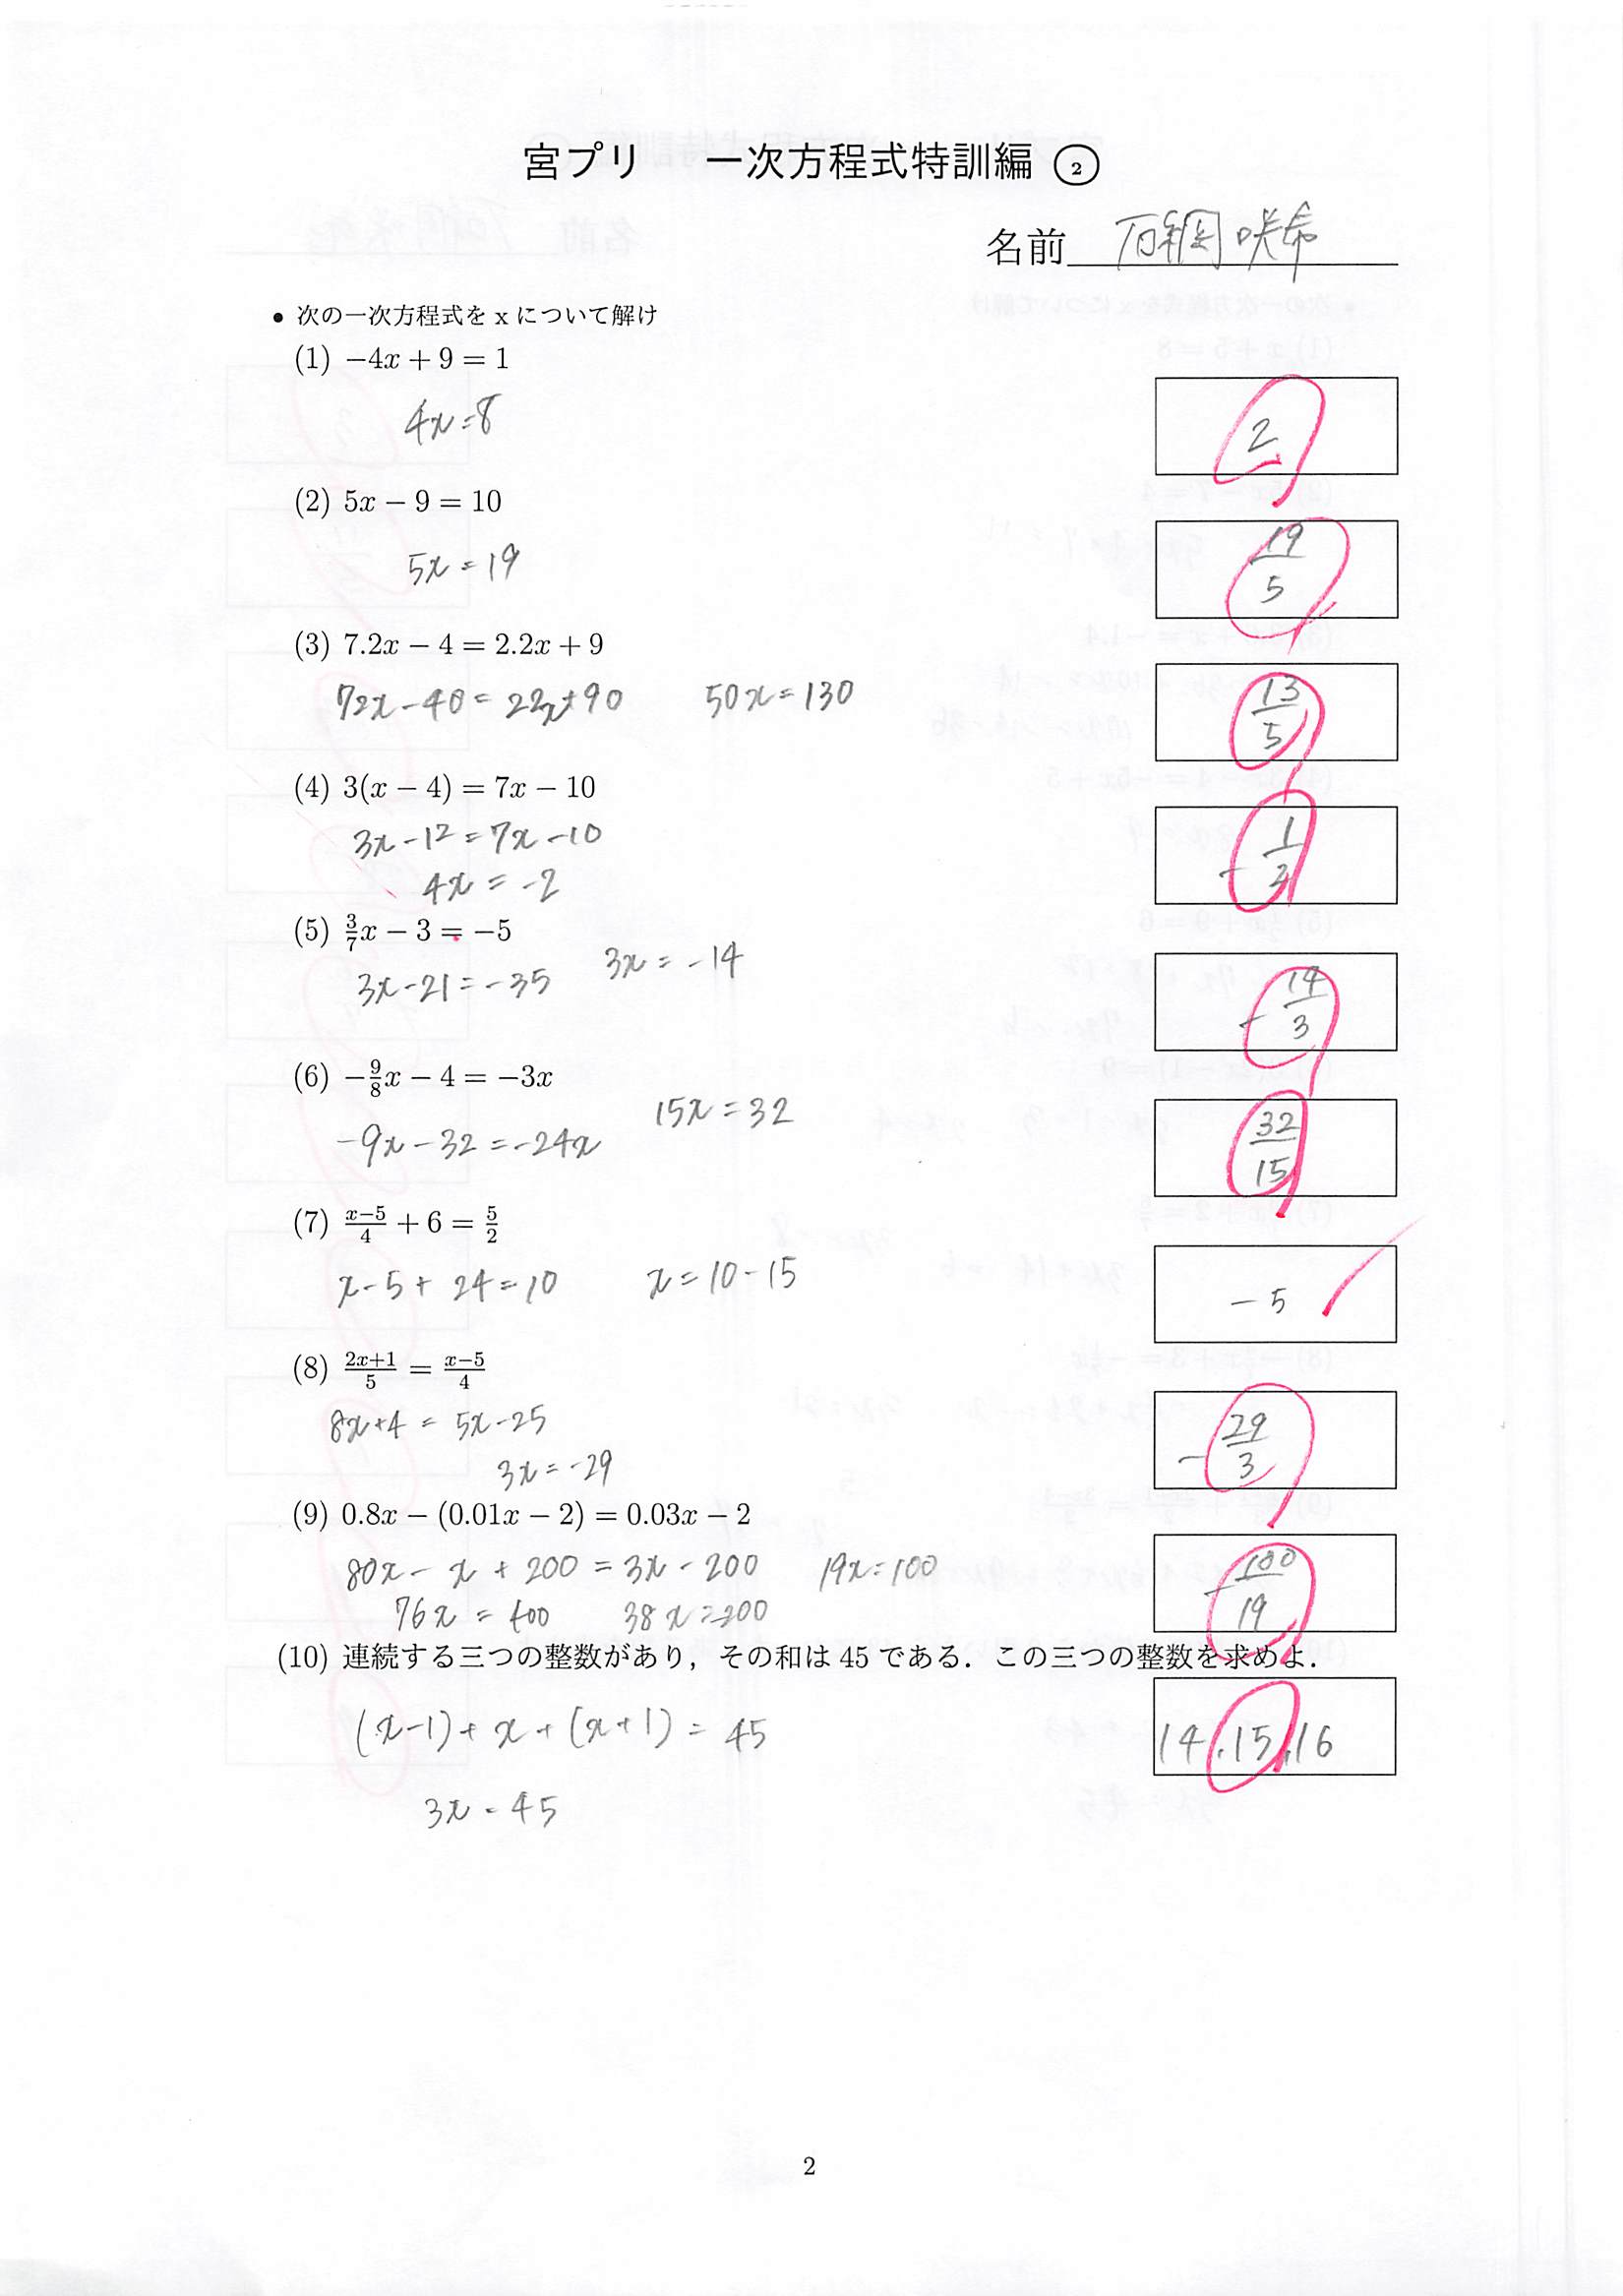 宮プリ 一次方程式特訓編 ②
名前 石綱 咲希
• 次の一次方程式を x について解け
(1) −4x + 9 = 1
4x=8
2
(2) 5x − 9 = 10
5x = 19
19/5
(3) 7.2x − 4 = 2.2x + 9
72x-40=22x+90 50x=130
13/5
(4) 3(x − 4) = 7x − 10
3x-12=7x-10
4x = -2
-1/2
(5) 3/7x − 3 = −5
3x-21=-35 3x=-14
-14/3
(6) −9/8x − 4 = −3x
-9x-32=-24x 15x=32
32/15
(7) x−5/4 + 6 = 5/2
x-5+24=10 x=10-15
-5
(8) 2x+1/5 = x−5/4
8x+4 = 5x-25
3x=-29
-29/3
(9) 0.8x − (0.01x − 2) = 0.03x − 2
80x- x + 200 = 3x - 200 19x=100
76x = 400 38x=200
-100/19
(10) 連続する三つの整数があり，その和は 45 である．この三つの整数を求めよ．
(x-1)+x+(x+1)= 45
14.15.16
3x=45
2